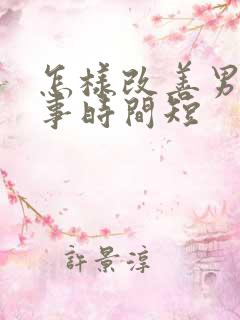 怎樣改善男
事時間短
許景淳